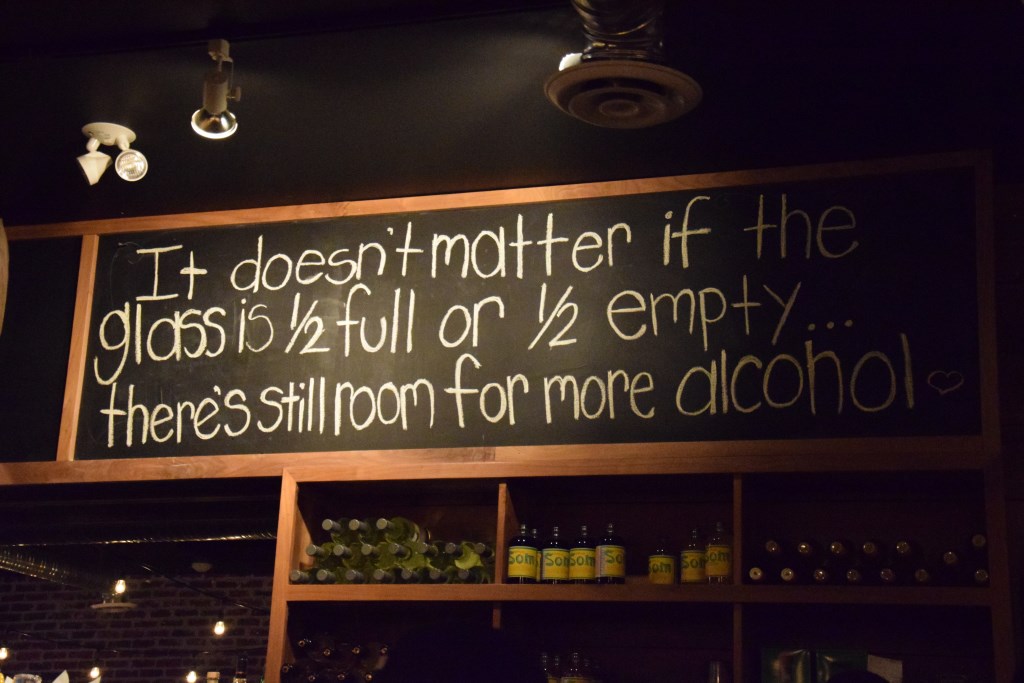 It doesn't matter if the
glass is ½ full or ½ empty...
there's still room for more alcohol ♡
Som Som Som Som Som Som Som